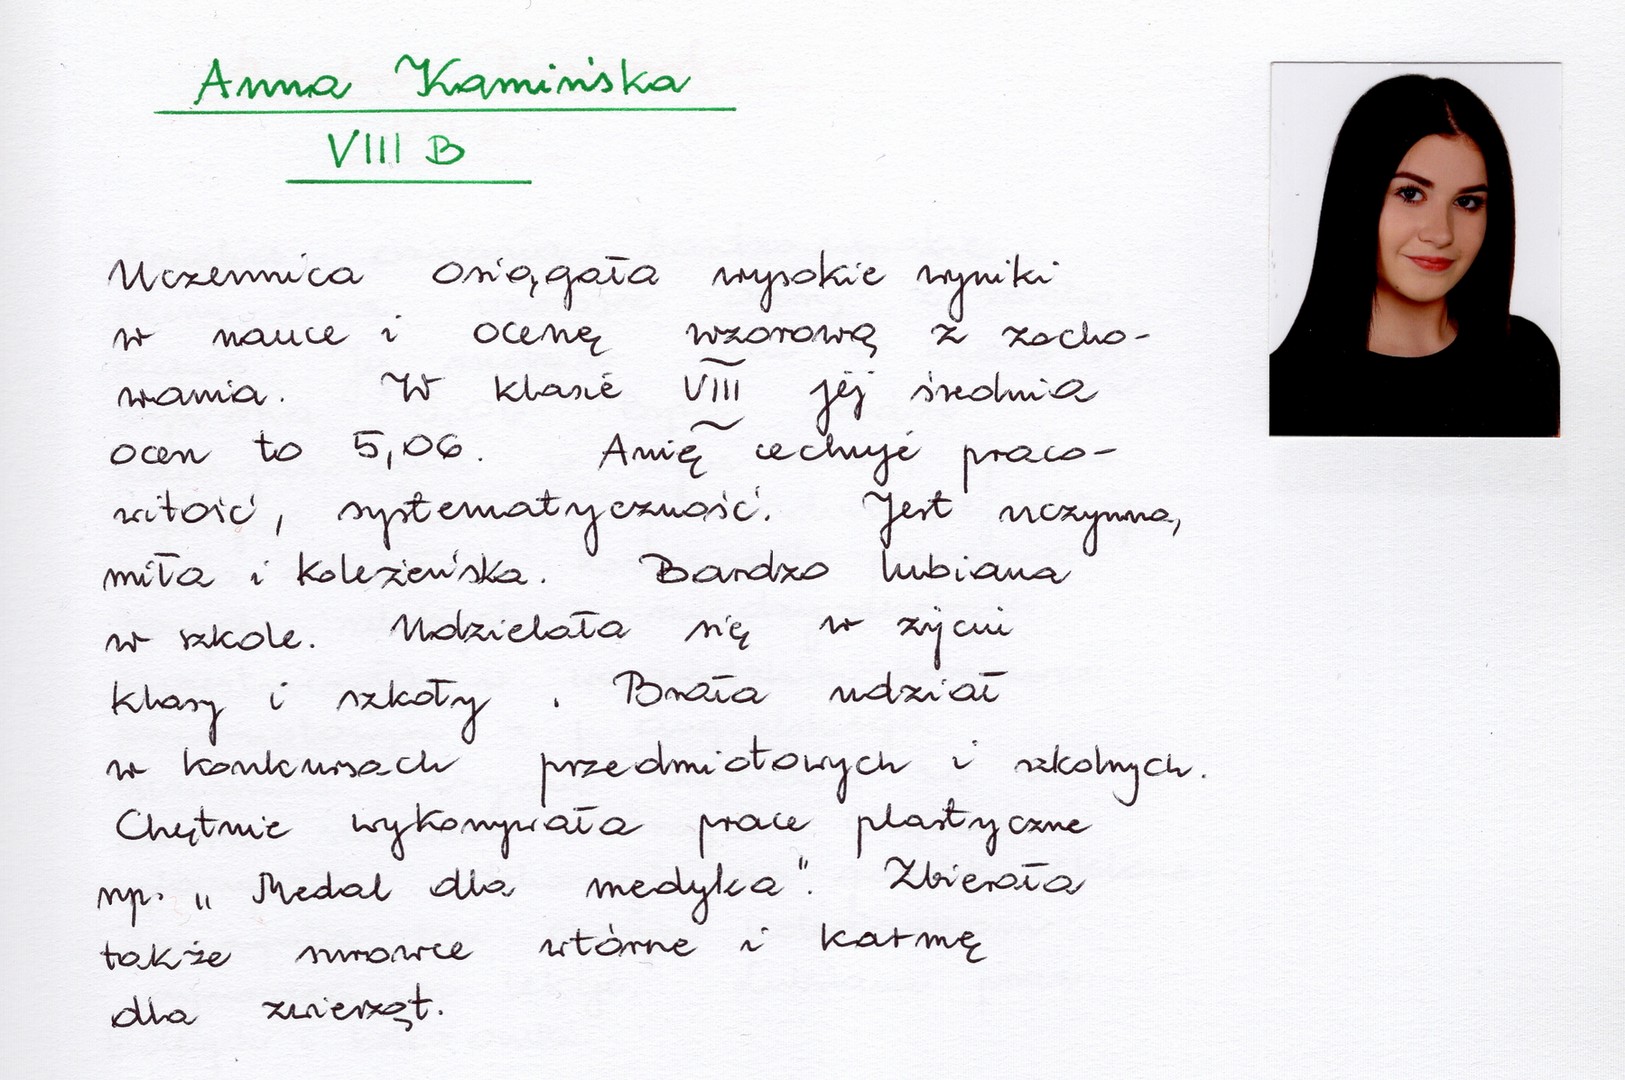 Anna Kamińska
VIII B
Uczennica osiągała wysokie wyniki
w nauce i ocenę wzorową z zacho-
wania. W klasie VIII jej średnia
ocen to 5,06. Anię cechuje praco-
witość, systematyczność. Jest uczynna,
miła i koleżeńska. Bardzo lubiana
w szkole. Udzielała się w życiu
klasy i szkoły . Brała udział
w konkursach przedmiotowych i szkolnych.
Chętnie wykonywała prace plastyczne
np. „Medal dla medyka". Zbierała
także surowce wtórne i karmę
dla zwierząt.